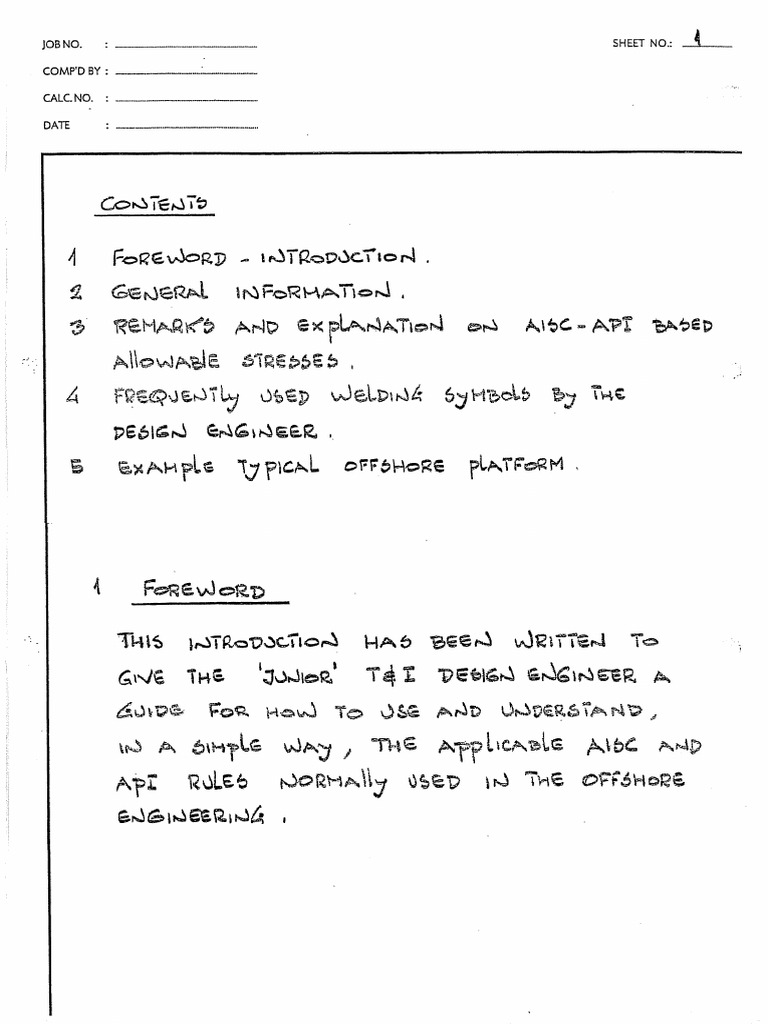 JOB NO. :
SHEET NO.: 1
COMP'D BY :
CALC. NO. :
DATE :
CONTENTS
1 FOREWORD - INTRODUCTION.
2 GENERAL INFORMATION.
3 REMARK'S AND EXPLANATION ON AISC-API BASED
ALLOWABLE STRESSES.
4 FREQUENTLY USED WELDING SYMBOLS BY THE
DESIGN ENGINEER.
5 EXAMPLE TYPICAL OFFSHORE PLATFORM.
1 FOREWORD
THIS INTRODUCTION HAS BEEN WRITTEN TO
GIVE THE 'JUNIOR' T&I DESIGN ENGINEER A
GUIDE FOR HOW TO USE AND UNDERSTAND,
IN A SIMPLE WAY, THE APPLICABLE AISC AND
API RULES NORMALLY USED IN THE OFFSHORE
ENGINEERING.